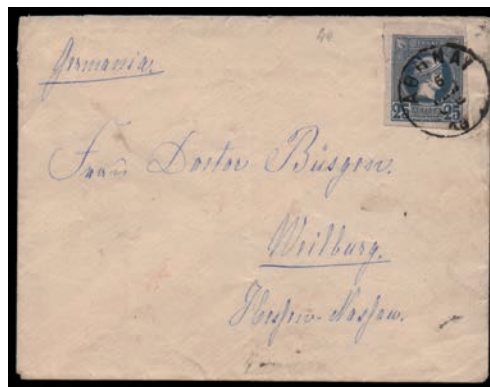 Germania.
ΑΘΗΝΑΙ
25 25
Frau Doctor Büsgen.
Weilburg.
Hessen-Nassau.